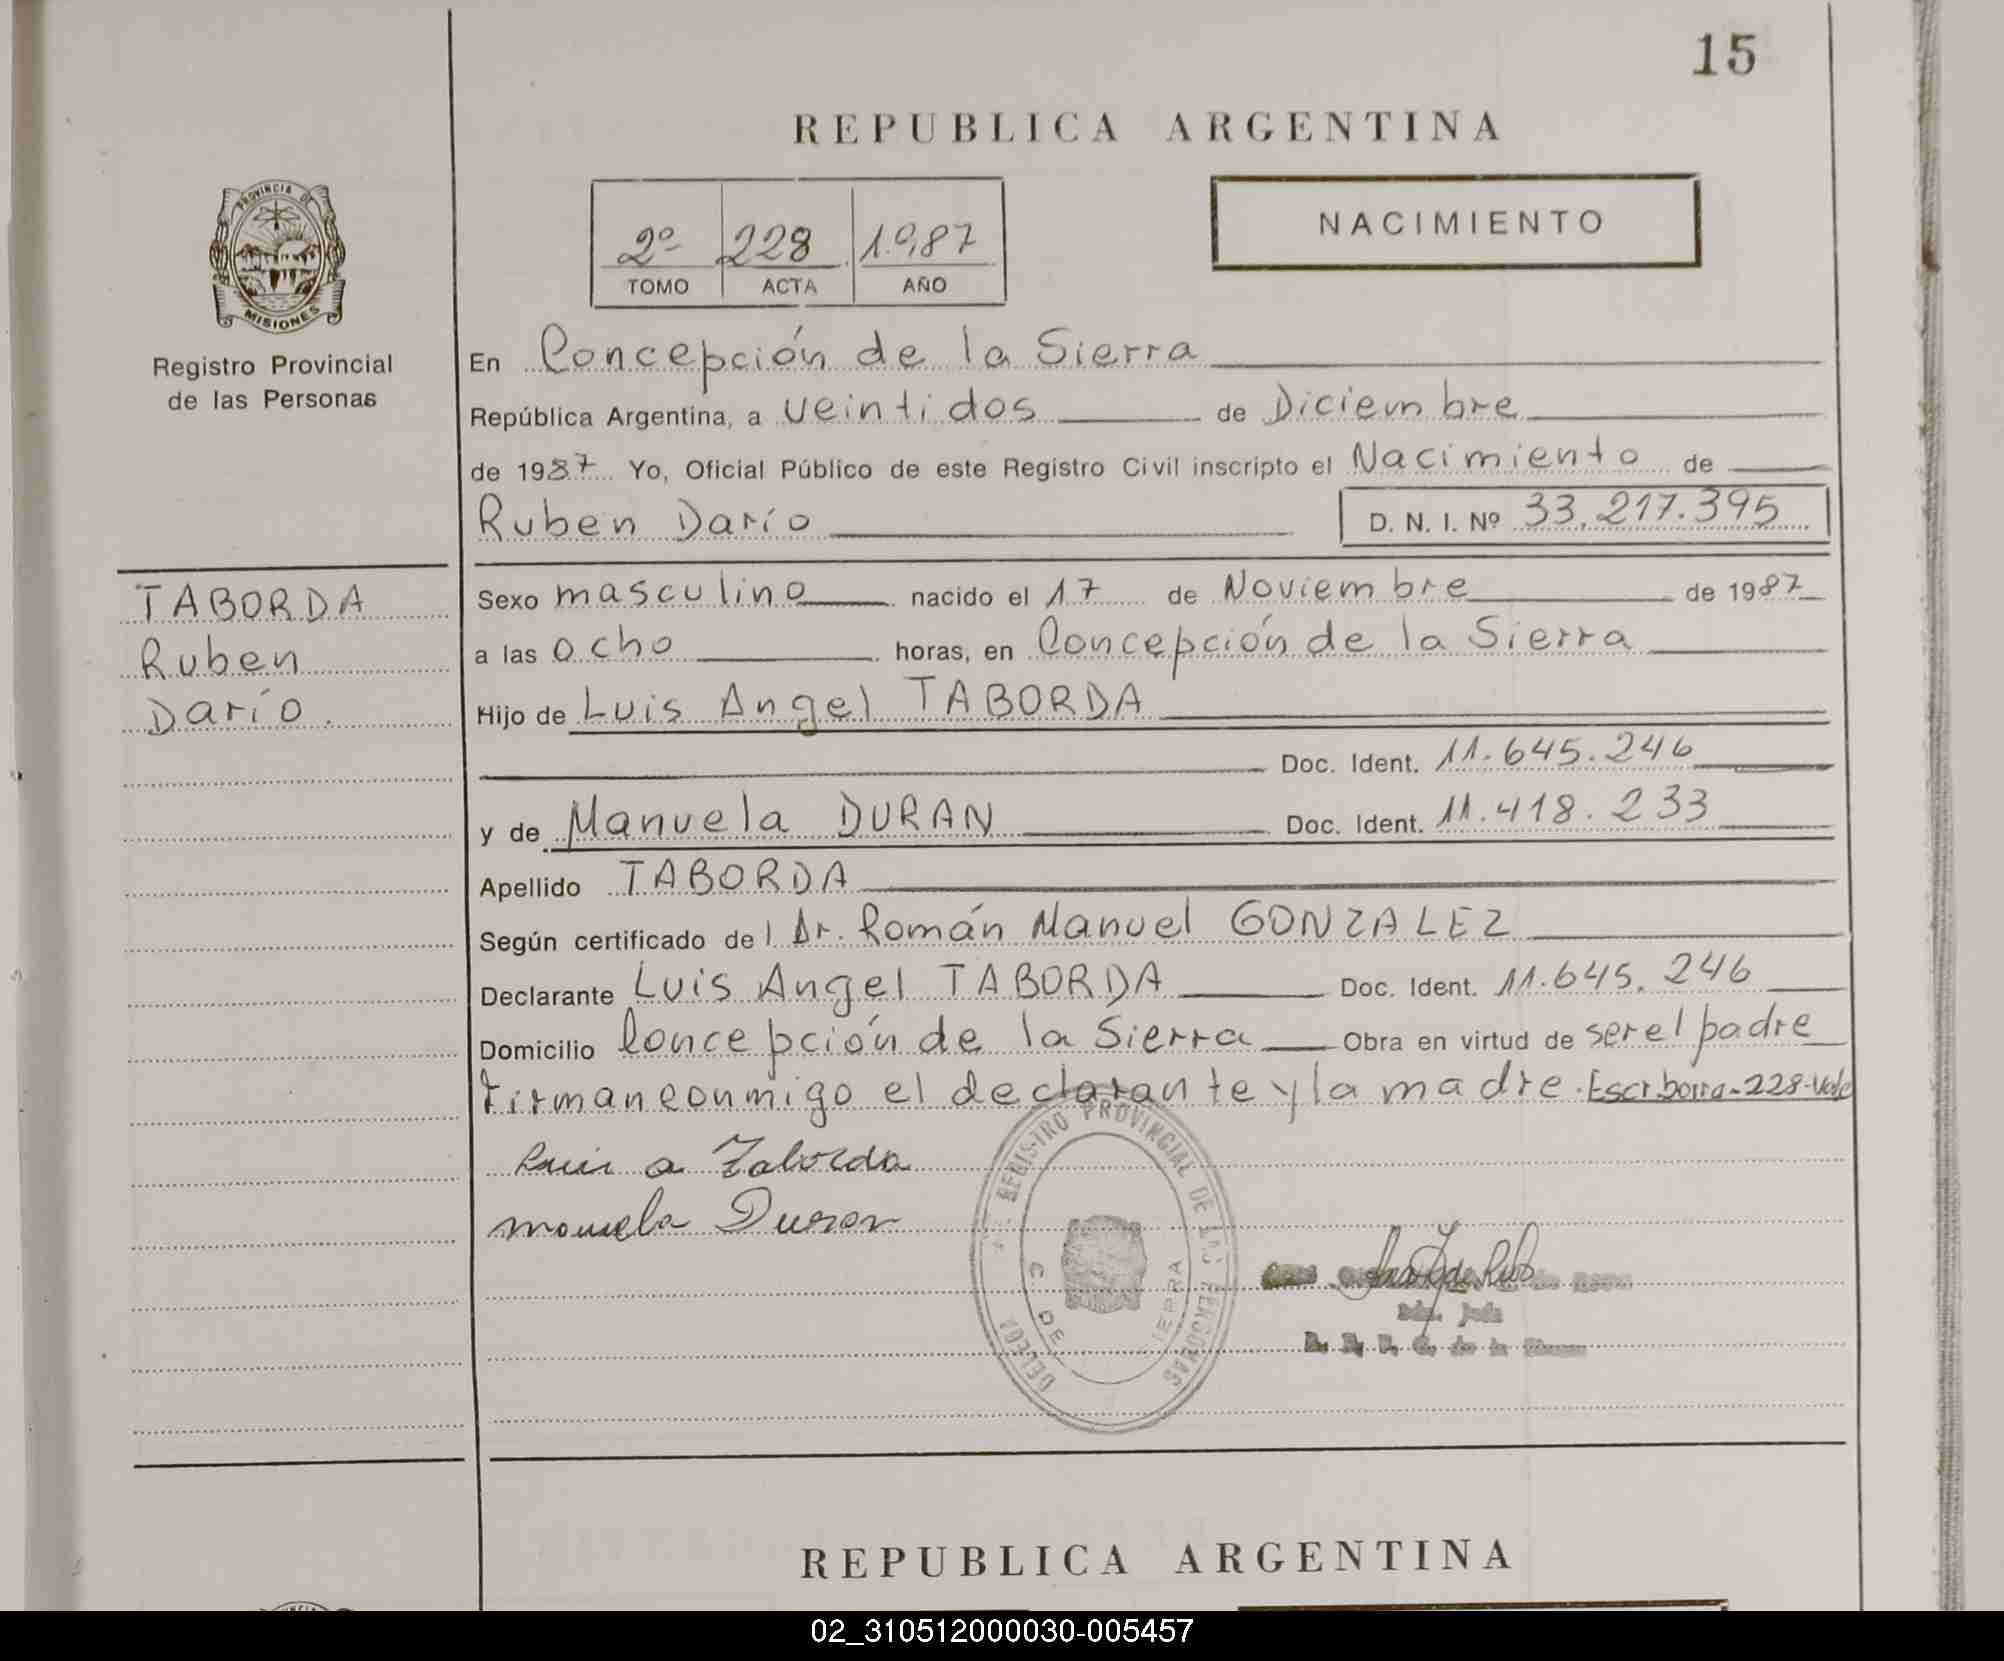 15
REPUBLICA ARGENTINA
PROVINCIA DE MISIONES
Registro Provincial
de las Personas
2º 228 1.987
TOMO ACTA AÑO
NACIMIENTO
En Concepción de la Sierra
República Argentina, a veintidos de Diciembre
de 1987 Yo, Oficial Público de este Registro Civil inscripto el Nacimiento de
Ruben Darío D. N. I. Nº 33.217.395
TABORDA
Ruben
Darío.
Sexo masculino nacido el 17 de Noviembre de 1987
a las ocho horas, en Concepción de la Sierra
Hijo de Luis Angel TABORDA
Doc. Ident. 11.645.246
y de Manuela DURAN Doc. Ident. 11.418.233
Apellido TABORDA
Según certificado del Dr. Román Manuel GONZALEZ
Declarante Luis Angel TABORDA Doc. Ident. 11.645.246
Domicilio Concepción de la Sierra Obra en virtud de ser el padre
Firman conmigo el declarante y la madre. Escr. borra-228-Vale
Luis a Taborda
manuela Duran
REGISTRO PROVINCIAL DE LAS PERSONAS
C. DE IERRA
REPUBLICA ARGENTINA
02_310512000030-005457